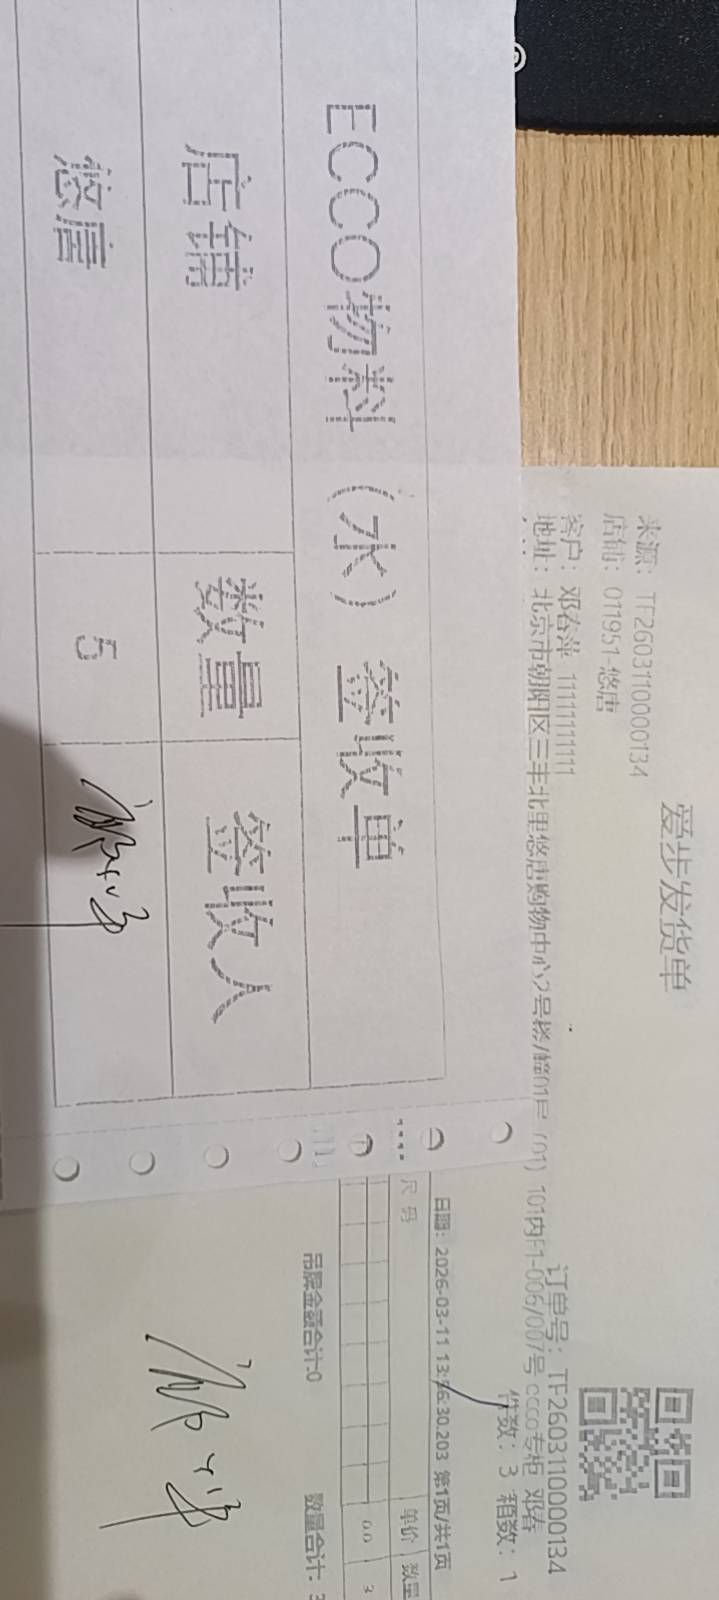 ECCO物料（水）签收单
店铺 数量 签收人
悠唐 5
爱步发货单
来源：TF2603110000134
店铺：011951-悠唐
客户：邓春萍 11111111111
地址：北京市朝阳区三丰北里悠唐购物中心2号楼1幢01层（01）101内F1-006/007号 ecco专柜 邓春
订单号：TF2603110000134
件数：3 箱数：1
日期：2026-03-11 13:56:30.203 第1页/共1页
尺码 单价 数量
0.0 3
吊牌金额合计:0 数量合计：3